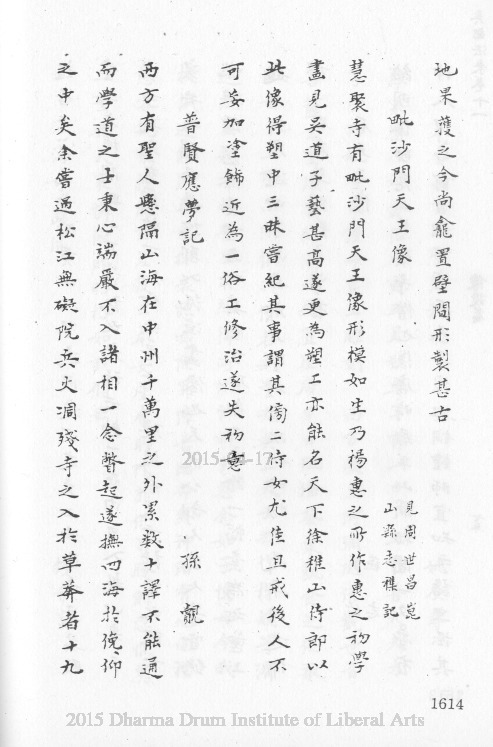 地果獲之今尚龕置壁間形製甚古
見周世昌崑
山縣志雜記
毗沙門天王像
慧聚寺有毗沙門天王像形模如生乃楊惠之所作惠之初學
畫見吳道子藝甚高遂更為塑工亦能名天下徐稚山侍郎以
此像得塑中三昧嘗紀其事謂其傍二侍女尤佳且戒後人不
可妄加塗飾近為一俗工修治遂失初意
普賢應夢記
孫覿
西方有聖人懸隔山海在中州千萬里之外累數十譯不能通
而學道之士秉心端嚴不入諸相一念瞥起遂撫四海於俛仰
之中矣余嘗過松江無礙院兵火凋殘寺之入於草莽者十九
2015-04-17
1614
2015 Dharma Drum Institute of Liberal Arts